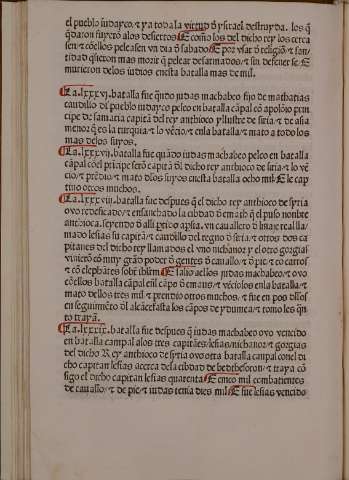 el pueblo iudayco: ⁊ ya toda la virtud ďysrael destruyda. los q̃
q̃daron fuyerō alos desiertos. E como los del dicho rey los cerca
sen ⁊ cōellos peleasen vn dia ď sabado. E por vsar ď religiō ⁊ san
tidad q̃sieron mas morir q̃ pelear desatinados ⁊ sin defender se. E
murieron delos iudios enesta batalla mas de mil.
La .lxxxvi. batalla fue q̃ndo iudas machabeo fijo de mathatias
caudillo del pueblo iudayco peleo en batalla cāpal cō apolōio prin
cipe de samaria capitā del rey anthioco yllustre de siria ⁊ de asia
menor q̃ es la turquia: ⁊ lo vēcio ⁊ enla batalla ⁊ mato a todo los
mas delos suyos.
La .lxxxvii. batalla fue quādo iudas machabeo peleo en batalla
cāpal cōel principe serō capitā ďl dicho rey anthioco de siria ⁊ lo vē
cio ⁊ prēdio ⁊ mato ďlos suyos enesta batalla ocho mil. E le cap
tiuo otros muchos.
La .lxxxviii. batalla fue despues q̃ el dicho rey anthioco de syria
ouo redeficado ⁊ ensanchado la cibdad ď q̃ el puso nonbre
anthioca. seyendo ď alli vn cauallero ď linaje real lla
mado lesias su capitā ⁊ caudillo del regno ď siria ⁊ otros dos ca
pitanes del dicho rey llamados el vno nichanor y el otro gorgias
vinierō cō muy grāo poder ď gentes ď cauallo ⁊ ď pie ⁊ cō carros
⁊ cō elephātes sobr̃ ihrlm. E salio aellos iudas machabeo ⁊ ouo
cōellos batalla cāpal eñl cāpo ď emaus ⁊ vēciolos enla batalla ⁊
mato dellos tres mil ⁊ prendio otros muchos. ⁊ fue en pos ďllos
en seguimēto ďl alcāce fasta los cāpos de ydumea ⁊ tomo les q̃n
to trayā.
La .lxxxix. batalla fue despues q̃ iudas machabeo ouo vencido
en batalla campal alos tres capitanes lesias nichanor ⁊ gorgias
del dicho Rey anthioco de syria ouo otra batalla canpal conel di
cho capitan lesias acerca dela cibdad de bedthesoron: ⁊ traya cō
sigo el dicho capitan lesias quarenta E cinco mil combatientes
de cauallo ⁊ de pie ⁊ iudas tenia dies mil. E fue lesias vencido